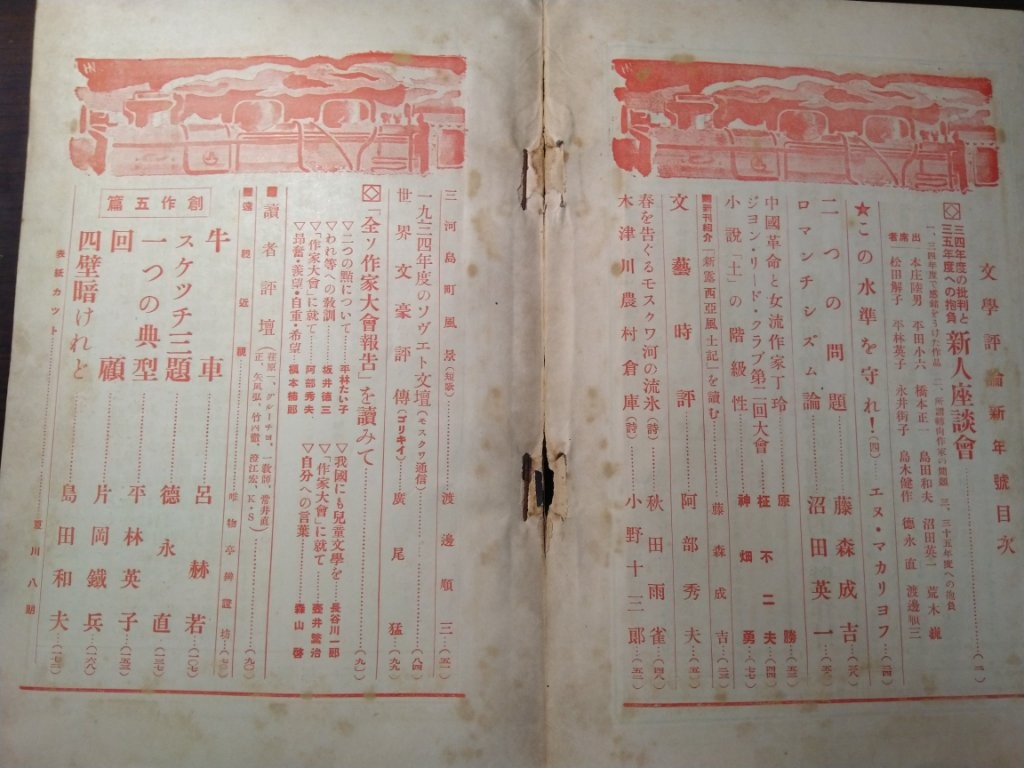 文學評論新年號目次
◇三四年度の批判と
三五年度への抱負
新人座談會
一、三四年度で感銘をうけた作品 二、所謂轉向作家の問題 三、三十五年度への抱負
出席者
本庄陸男 平田小六 橋本正一 島田和夫 沼田英一 荒木巍
松田解子 平林英子 永井街子 島木健作 德永直 渡邊順三
★この水準を守れ!(四)…エヌ・マカリヨフ…(二四)
二つの問題…藤森成吉…(二八)
ロマンチシズム論…沼田英一
中國革命と女流作家丁玲…原勝
ジョン・リード・クラブ第二回大會…柾不二夫…(四四)
小說「土」の階級性…神畑勇…(七七)
新刊紹介「新露西亞風土記」を讀む…藤森成吉
文藝時評…阿部秀夫
春を吿ぐるモスクワ河の流氷(詩)…秋田雨雀…(四八)
木津川農村倉庫(詩)…小野十三郎…(五二)
三河島町風景(短歌)…渡邊順三…(五一)
一九三四年度のソヴエト文壇(モスクワ通信)…(八四)
世界文豪評傳(ゴリキイ)…廣尾猛…(九九)
◇「全ソ作家大會報吿」を讀みて…(九一)
▽二つの點について…平林たい子
▽われ等への敎訓…坂井德三
▽「作家大會」に就て…阿部秀夫
▽昂奮・羨望・自重・希望…槇本楠郎
▽我國にも兒童文學を…長谷川一郎
▽「作家大會」に就て…壺井繁治
▽自分への言葉…森山啓
讀者評壇(荏原一、グルーチヨ、一敎師、常井直
正、矢風弘、竹內徹、澄江宏、K・S)…(九〇)
遠視近視…唯物亭辨證坊…(七〇)
創作五篇
牛車…呂赫若…(一〇七)
スケツチ三題…德永直…(一三七)
一つの典型…平林英子…(一五三)
回顧…片岡鐵兵…(一六八)
四壁暗けれど…島田和夫…(一七三)
表紙カツト…夏川八朗